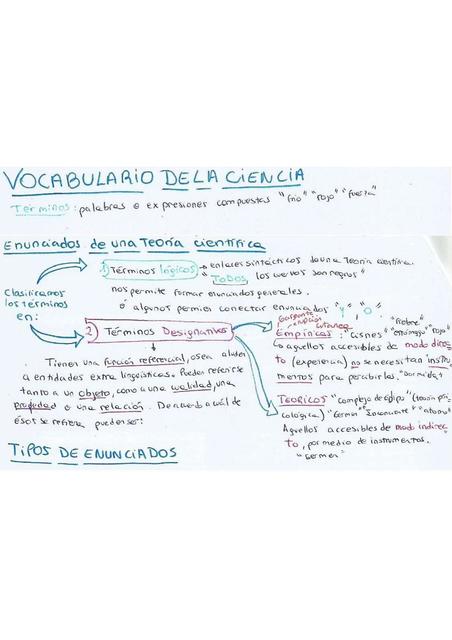 VOCABULARIO DE LA CIENCIA
Términos: palabras o expresiones compuestas "frío" "rojo" "fuerza"
Enunciados de una Teoría científica
Clasificamos
los términos
en:
1) Términos lógicos → enlaces sintácticos de una Teoría científica.
"TODOS los cuervos son negros"
nos permite formar enunciados generales.
ó algunos permiten conectar enunciados "Y", "O".
2) Términos Designativos
Tienen una función referencial, o sea, aluden
a entidades extra lingüísticas. Pueden referirse
tanto a un objeto, como a una cualidad, una
propiedad o una relación. De acuerdo a cuál de
ésos se refiera pueden ser:
Garganta
erupción
cutánea
Empíricos: "cisnes" "fiebre" "estómago" "rojo"
aquellos accesibles de modo direc
to (experiencia) no se necesitan instru
mentos para percibirlos.
TEÓRICOS "complejo de edipo" (teoría psi
cológica) "Germen" "Inconsciente" "átomo"
Aquellos accesibles de modo indirec
to, por medio de instrumentos.
"Germen"
TIPOS DE ENUNCIADOS